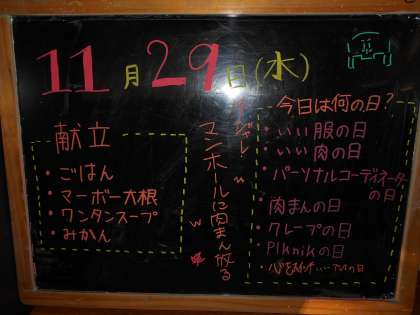 11月29日(水)
献立
・ごはん
・マーボー大根
・ワンタンスープ
・みかん
マンホールに肉まん放る
w
今日は何の日?
・いい服の日
・いい肉の日
・パーソナルコーディネーターの日
・肉まんの日
・クレープの日
・PIknikの日